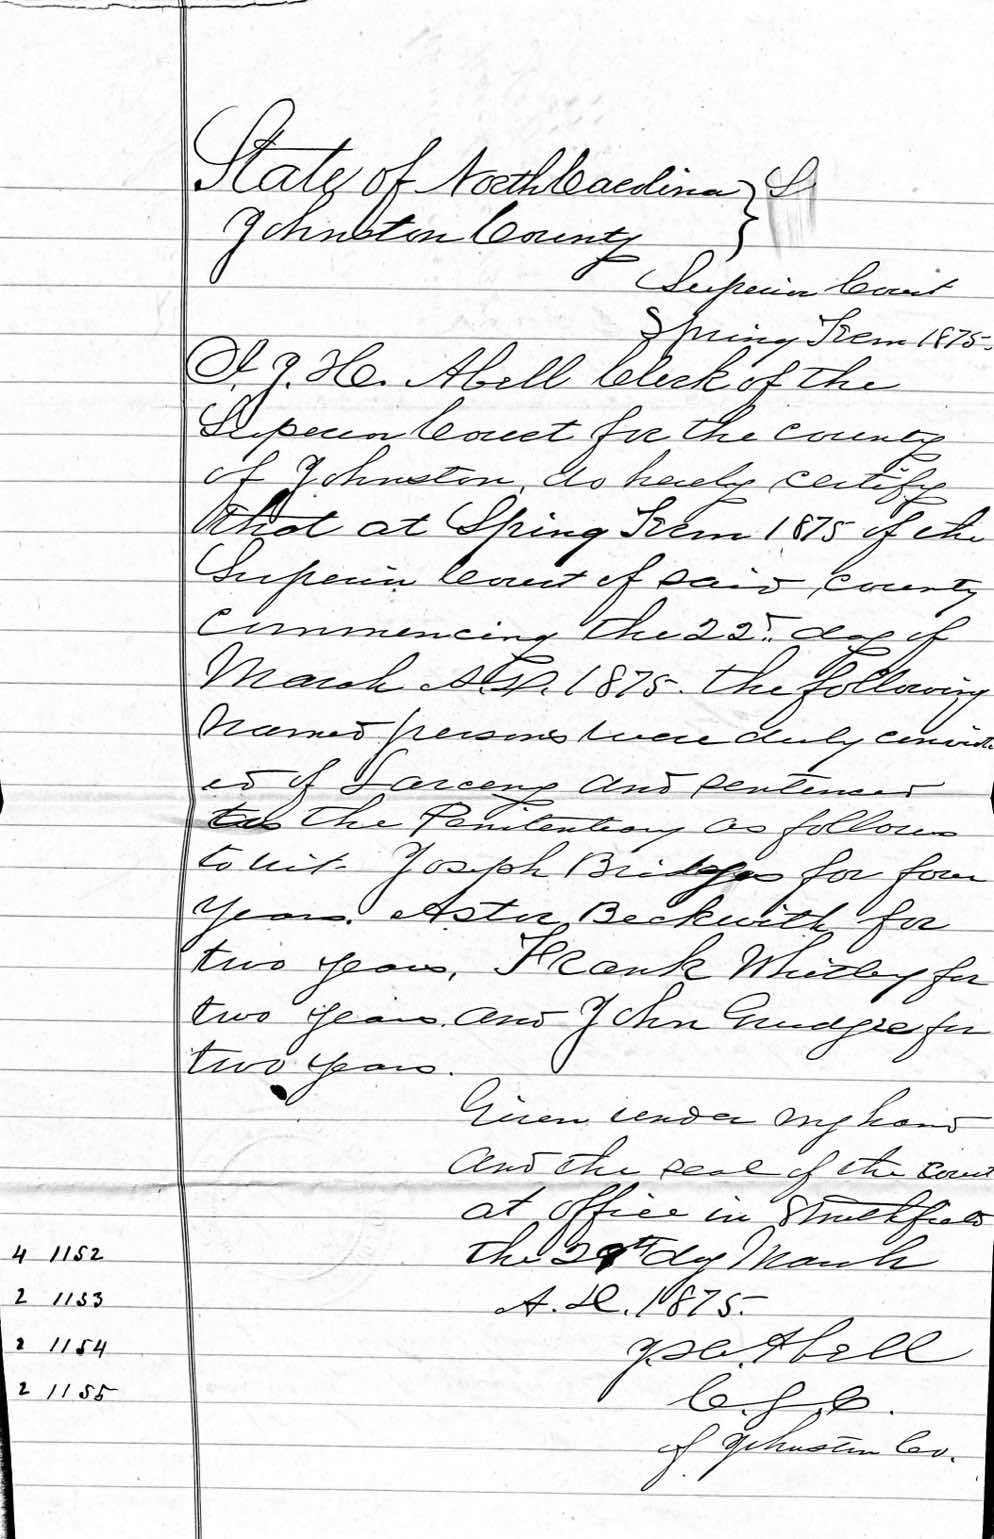 State of North Carolina } S
Johnston County
Superior Court
Spring Term 1875.
I, J. H. Abell Clerk of the
Superior Court for the county
of Johnston, do hereby certify
that at Spring Term 1875 of the
Superior Court of said county
commencing the 22d day of
March A.D. 1875. the following
named persons were duly convict
ed of Larceny and sentenced
to the Penitentiary as follows
to wit. Joseph Bridges for four
years. Astor Beckwith for
two years, Frank Whitley for
two years. and John Gudge for
two years.
Given under my hand
and the seal of the court
at office in Smithfield
the 29th day March
A. D. 1875.
J. H. Abell
C. S. C.
of Johnston Co.
4 1152
2 1153
2 1154
2 1155